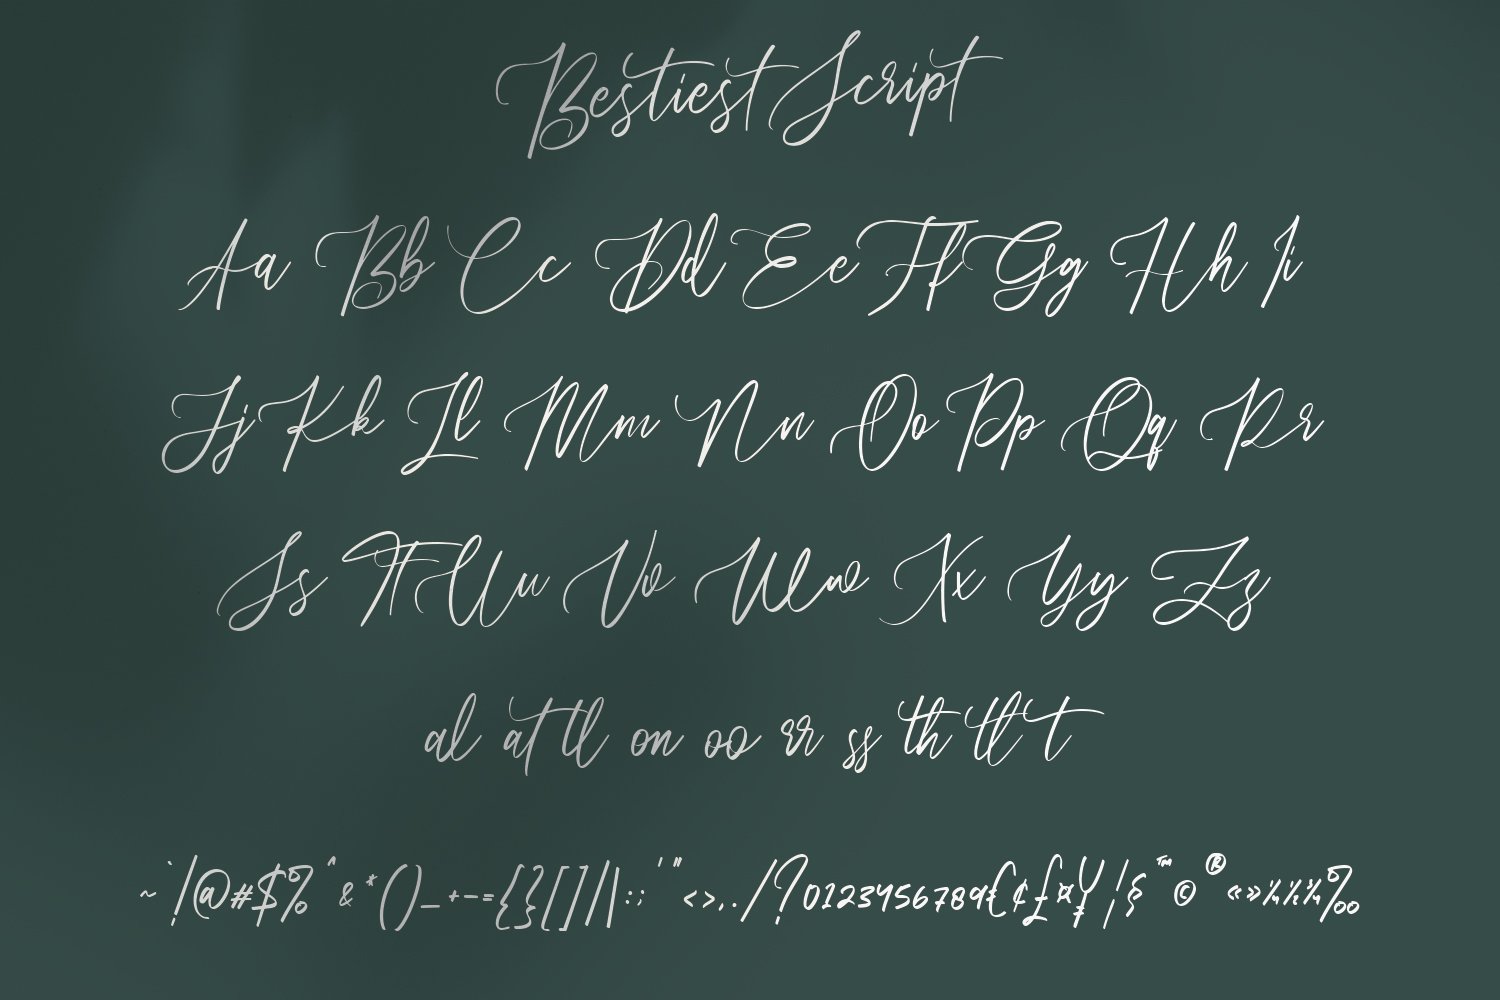 Bestiest Script
Aa Bb Cc Dd Ee Ff Gg Hh Ii
Jj Kk Ll Mm Nn Oo Pp Qq Rr
Ss Tt Uu Vv Ww Xx Yy Zz
al at tl on oo rr ss th tl t
~`!@#$%^&*()_+-={}[]\|:;'"<>,./?0123456789€¢£¤¥¦§™©®«»¼½¾‰